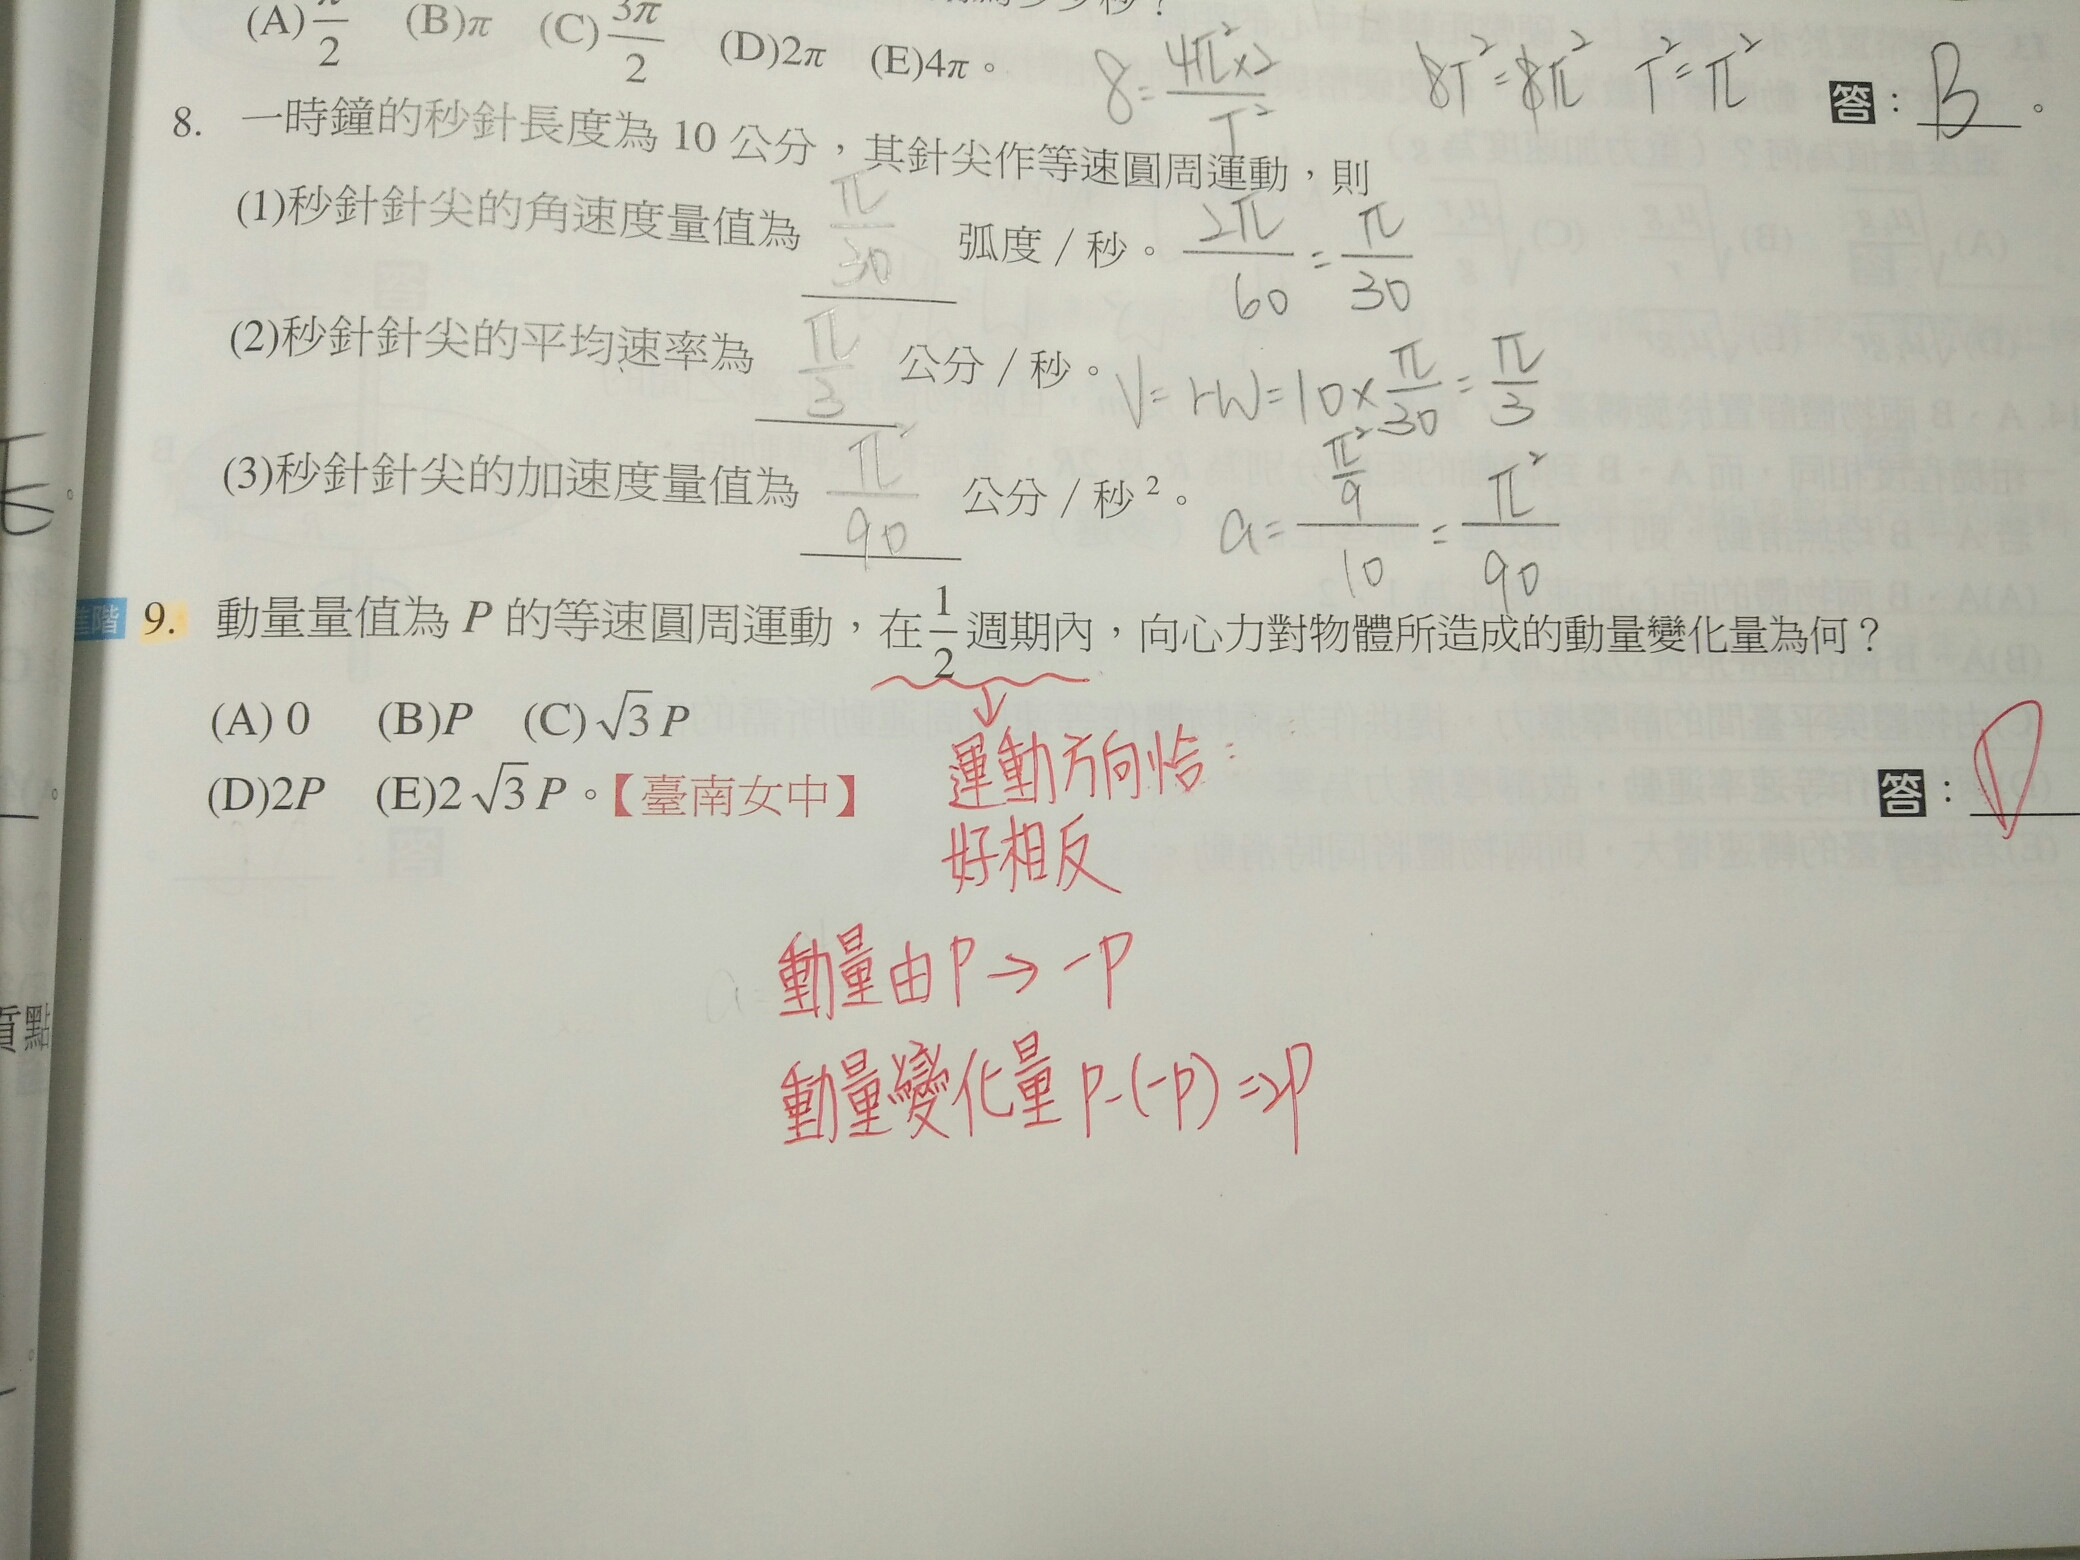 (A) π/2 (B)π (C) 3π/2 (D)2π (E)4π。 8= 4π²×2/T² 8T²=8π² T²=π² 答:B。
8. 一時鐘的秒針長度為 10 公分,其針尖作等速圓周運動,則
(1)秒針針尖的角速度量值為 π/30 弧度/秒。 2π/60 = π/30
(2)秒針針尖的平均速率為 π/3 公分/秒。 V=rw=10×π/30=π/3
(3)秒針針尖的加速度量值為 π²/90 公分/秒²。 a= (π²/9)/10 = π²/90
進階 9. 動量量值為 P 的等速圓周運動,在 1/2 週期內,向心力對物體所造成的動量變化量為何?
(A) 0 (B)P (C)√3 P
(D)2P (E)2√3 P。【臺南女中】 答:D
↓
運動方向恰
好相反
動量由P→-P
動量變化量 P-(-P)=2P
質點
E。